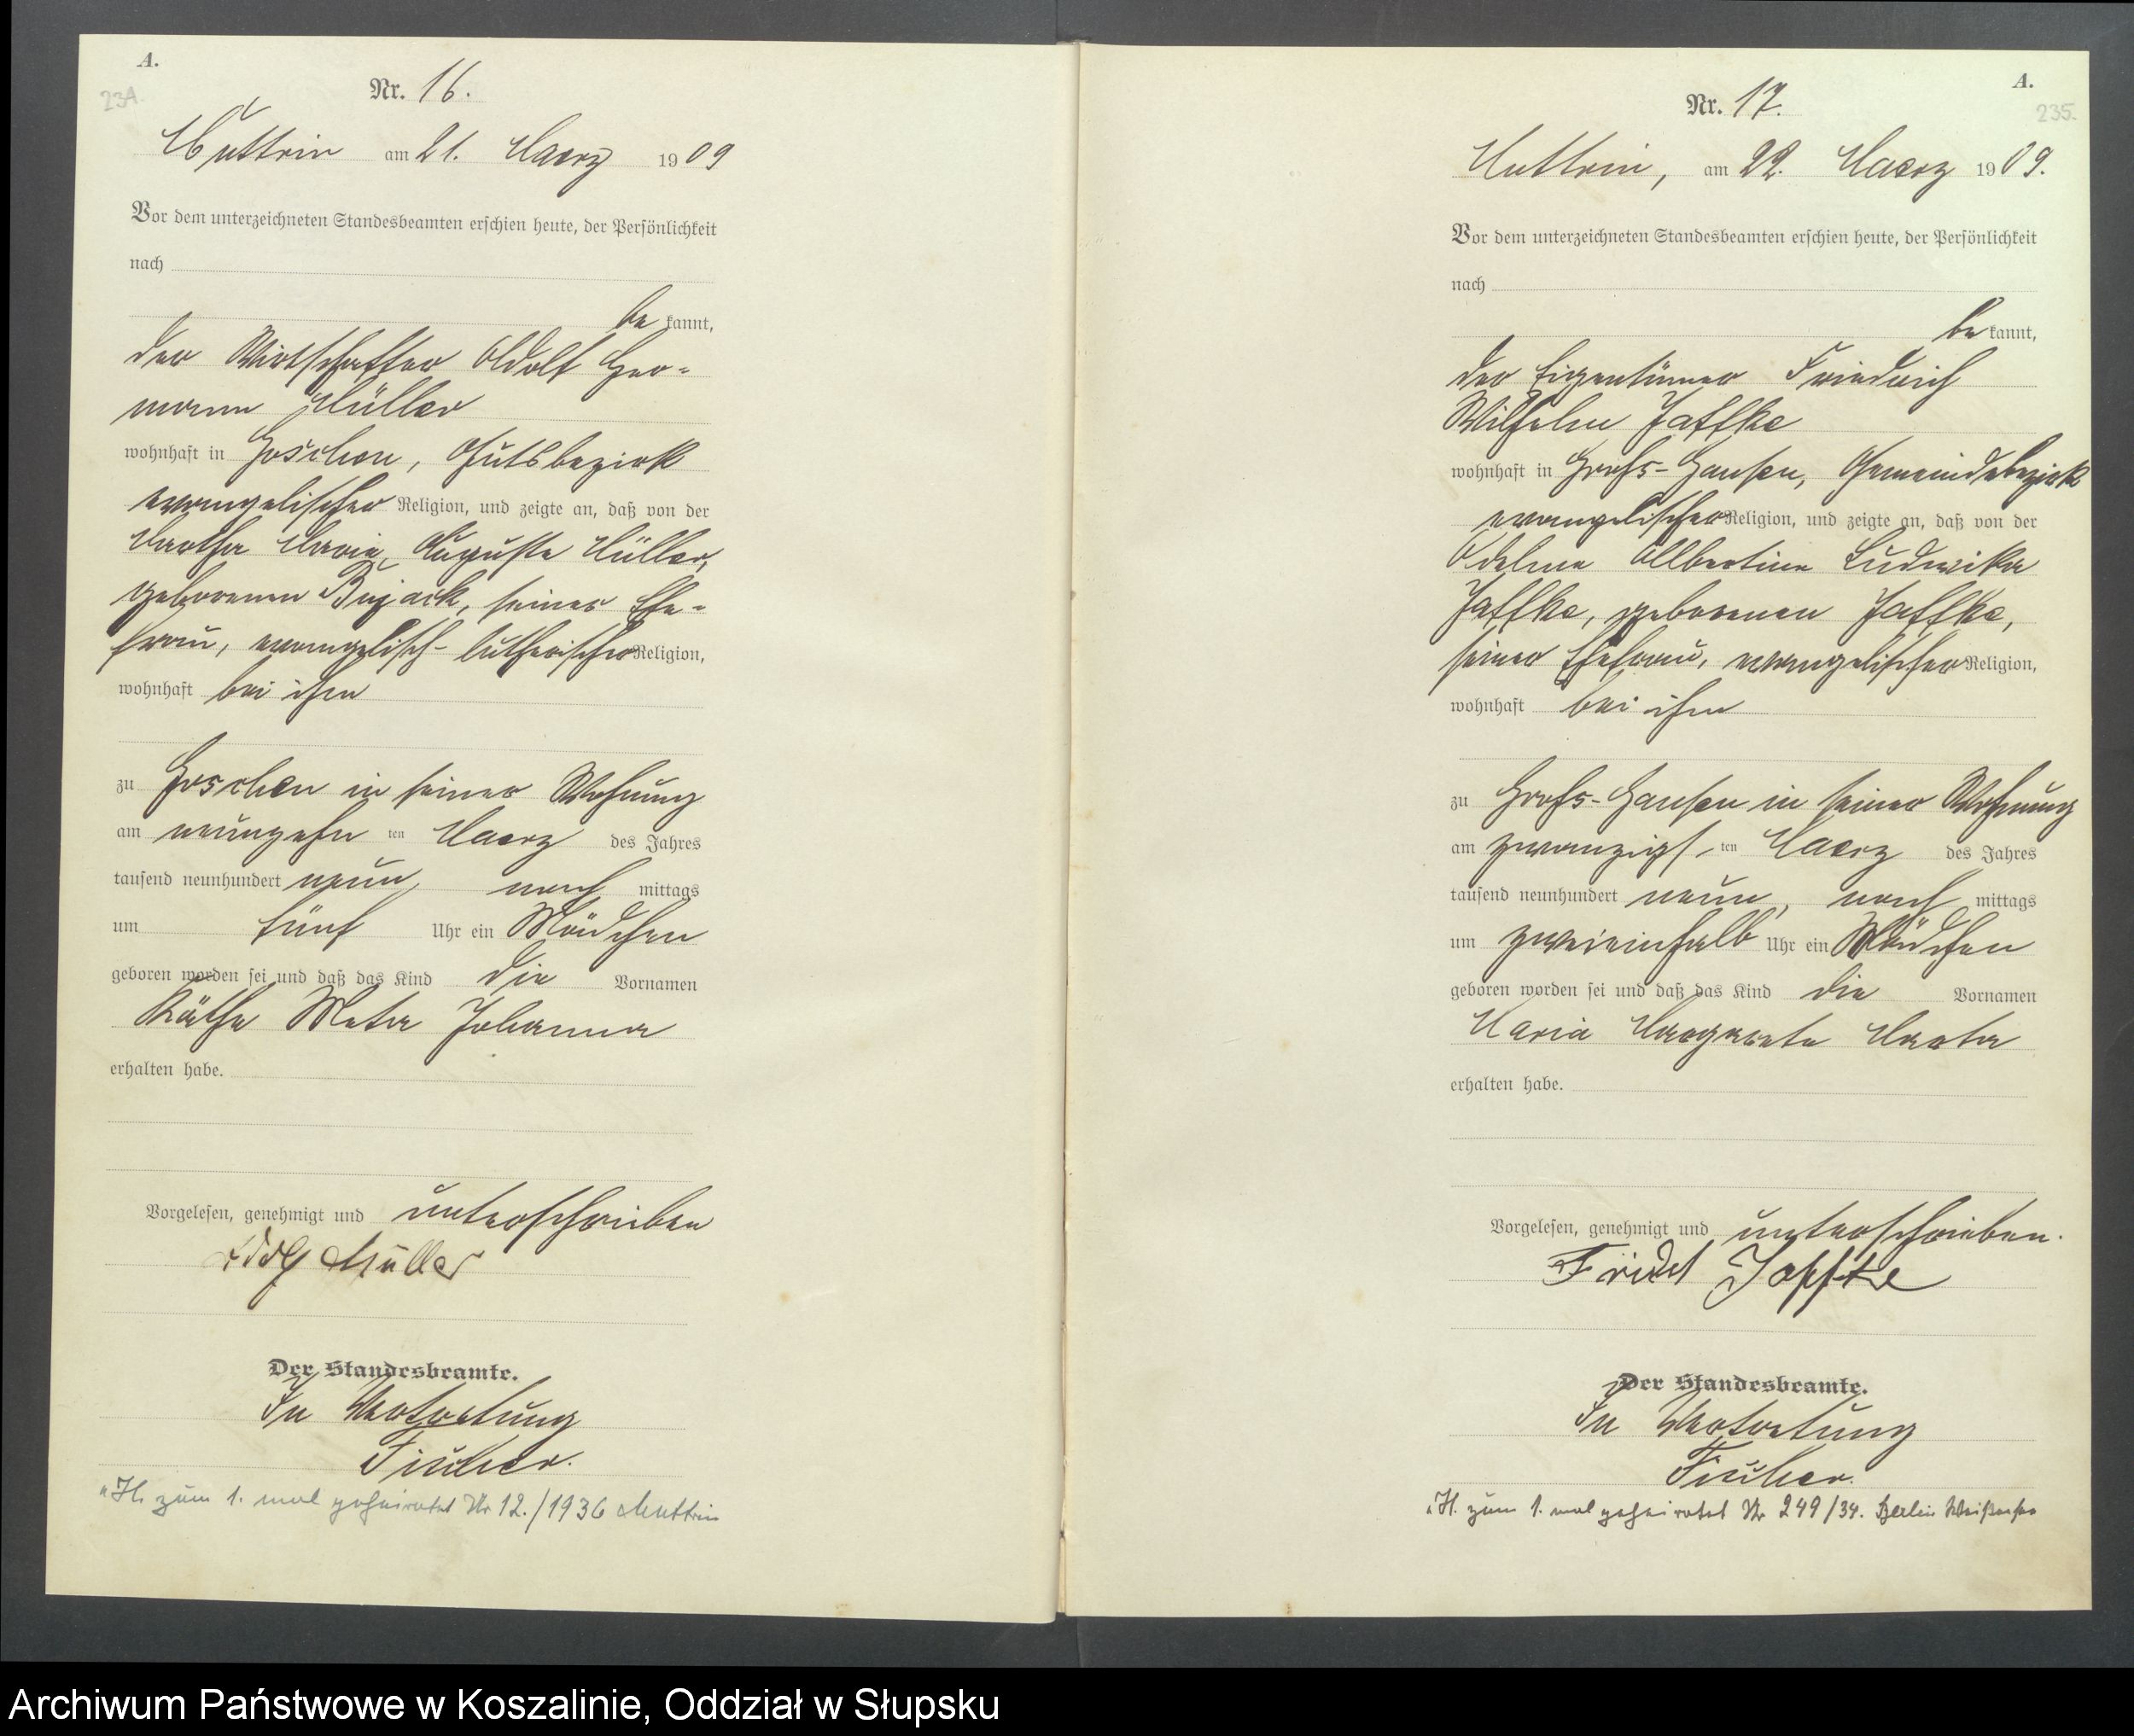 A.
234.
Nr. 16.
Muttrin am 21. Maerz 1909
Vor dem unterzeichneten Standesbeamten erschien heute, der Persönlichkeit
nach
be kannt,
der Wirtschafter Adolf Her-
mann Müller
wohnhaft in Goschen, Gutsbezirk
evangelischer Religion, und zeigte an, daß von der
Martha Maria Auguste Müller,
geborenen Bujack, seiner Ehe-
frau, evangelisch-lutherischer Religion,
wohnhaft bei ihm
zu Goschen in seiner Wohnung
am neunzehn ten Maerz des Jahres
tausend neunhundert neun, nach mittags
um fünf Uhr ein Mädchen
geboren worden sei und daß das Kind die Vornamen
Käthe Meta Johanna
erhalten habe.
Vorgelesen, genehmigt und unterschrieben
Adolf Müller
Der Standesbeamte.
In Vertretung
Fischer.
H. zum 1. mal geheiratet Nr 12./1936 Muttrin
A.
235.
Nr. 17.
Muttrin, am 22. Maerz 1909.
Vor dem unterzeichneten Standesbeamten erschien heute, der Persönlichkeit
nach
be kannt,
der Eigentümer Friedrich
Wilhelm Jaffke
wohnhaft in Groß-Gansen, Gemeindebezirk
evangelischer Religion, und zeigte an, daß von der
Adeline Albertine Ludwika
Jaffke, geborenen Jaffke,
seiner Ehefrau, evangelischer Religion,
wohnhaft bei ihm
zu Groß-Gansen in seiner Wohnung
am zwanzigs ten Maerz des Jahres
tausend neunhundert neun, nach mittags
um zweieinhalb Uhr ein Mädchen
geboren worden sei und daß das Kind die Vornamen
Maria Margarete Marta
erhalten habe.
Vorgelesen, genehmigt und unterschrieben.
Jaffke
Der Standesbeamte.
In Vertretung
Fischer.
H. zum 1. mal geheiratet Nr 249/34. Berlin Weißensee
Archiwum Państwowe w Koszalinie, Oddział w Słupsku